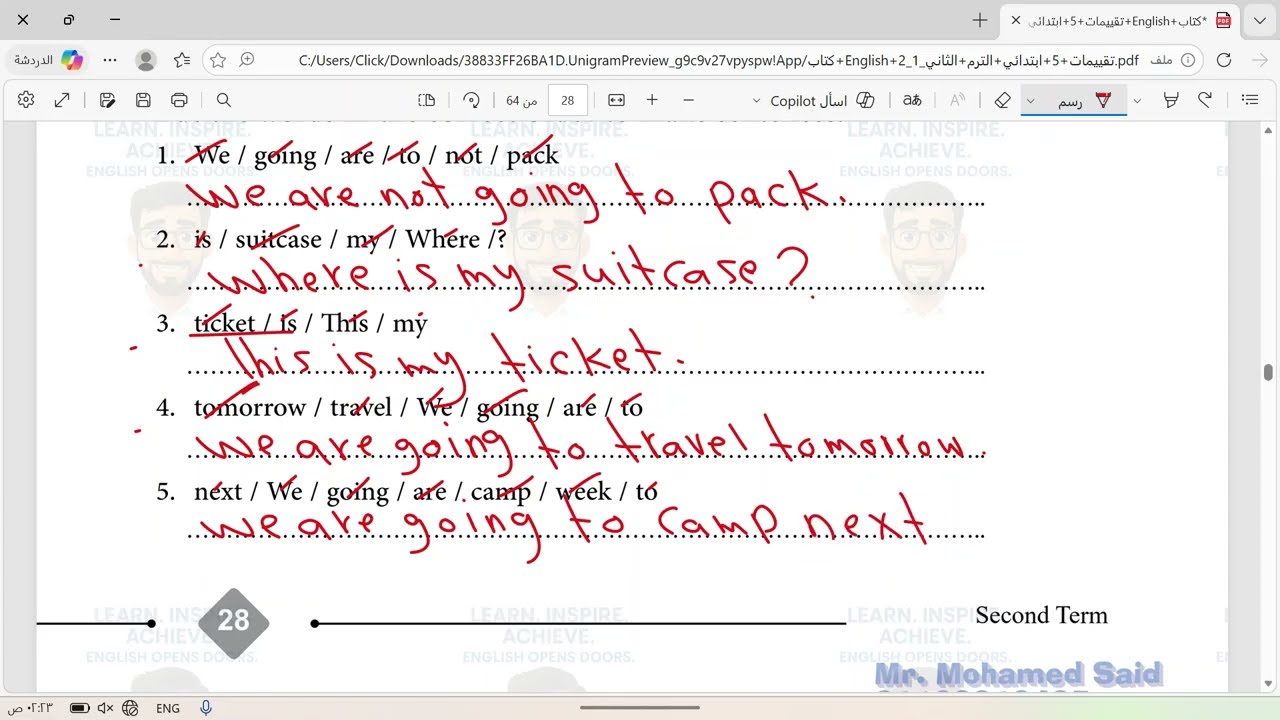 *كتاب+English+تقييمات+5+ابتدائي
الدردشة
C:/Users/Click/Downloads/38833FF26BA1D.UnigramPreview_g9c9v27vpyspw!App/كتاب+English+2_1_تقييمات+5+ابتدائي+الترم+الثاني.pdf
ملف
28 من 64
اسأل Copilot
رسم
LEARN. INSPIRE.
ACHIEVE.
ENGLISH OPENS DOORS.
1. We / going / are / to / not / pack
We are not going to pack.
2. is / suitcase / my / Where /?
Where is my suitcase?
3. ticket / is / This / my
This is my ticket.
4. tomorrow / travel / We / going / are / to
We are going to travel tomorrow.
5. next / We / going / are / camp / week / to
We are going to camp next
28
Second Term
LEARN. INSPIRE.
ACHIEVE.
ENGLISH OPENS DOORS.
Mr. Mohamed Said
٠٢:٢٣ ص
ENG